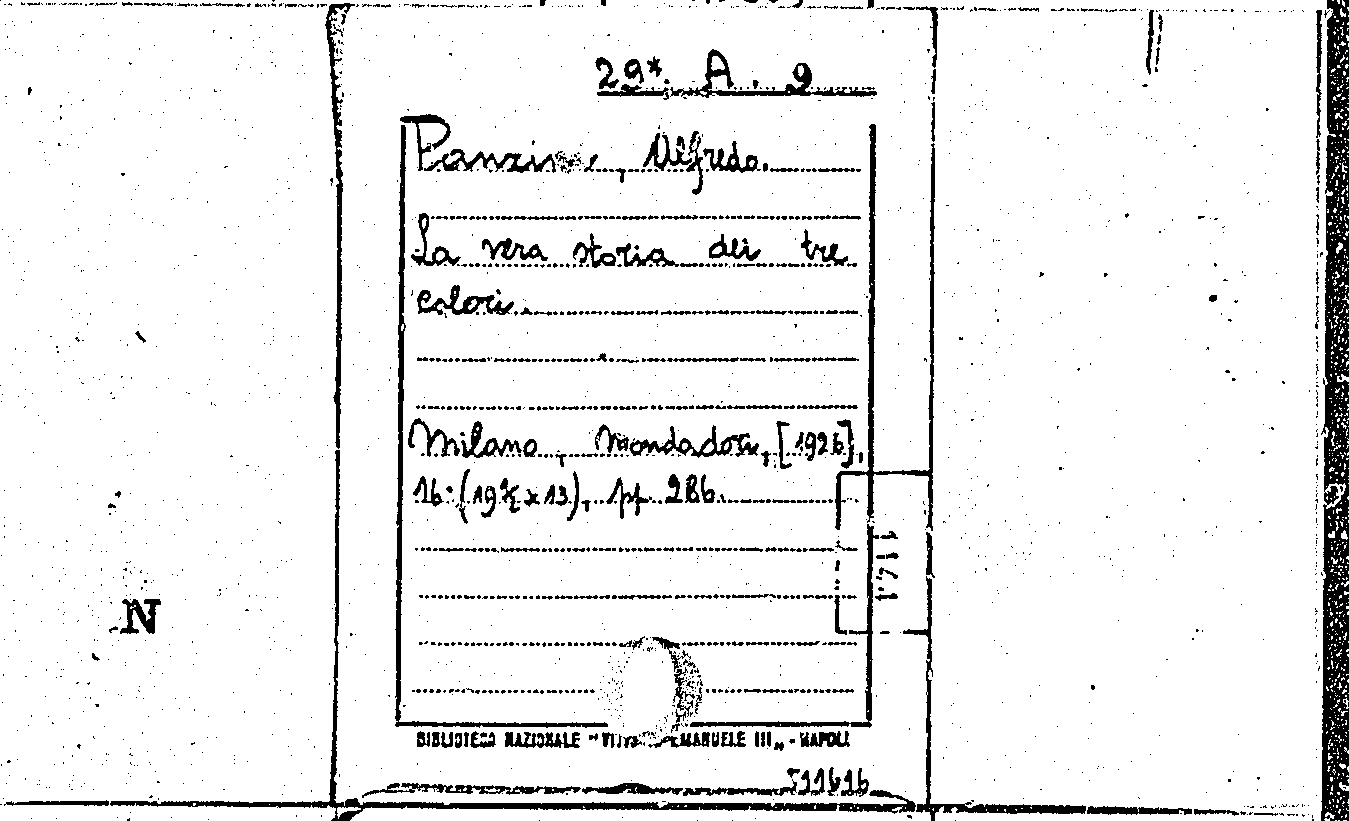 29*. A. 9
Panzini, Alfredo.
La vera storia dei tre
colori.
Milano, Mondadori, [1926],
16° (19½ x 13), pp. 286.
N
BIBLIOTECA NAZIONALE "VITTORIO EMANUELE III" - NAPOLI
511616